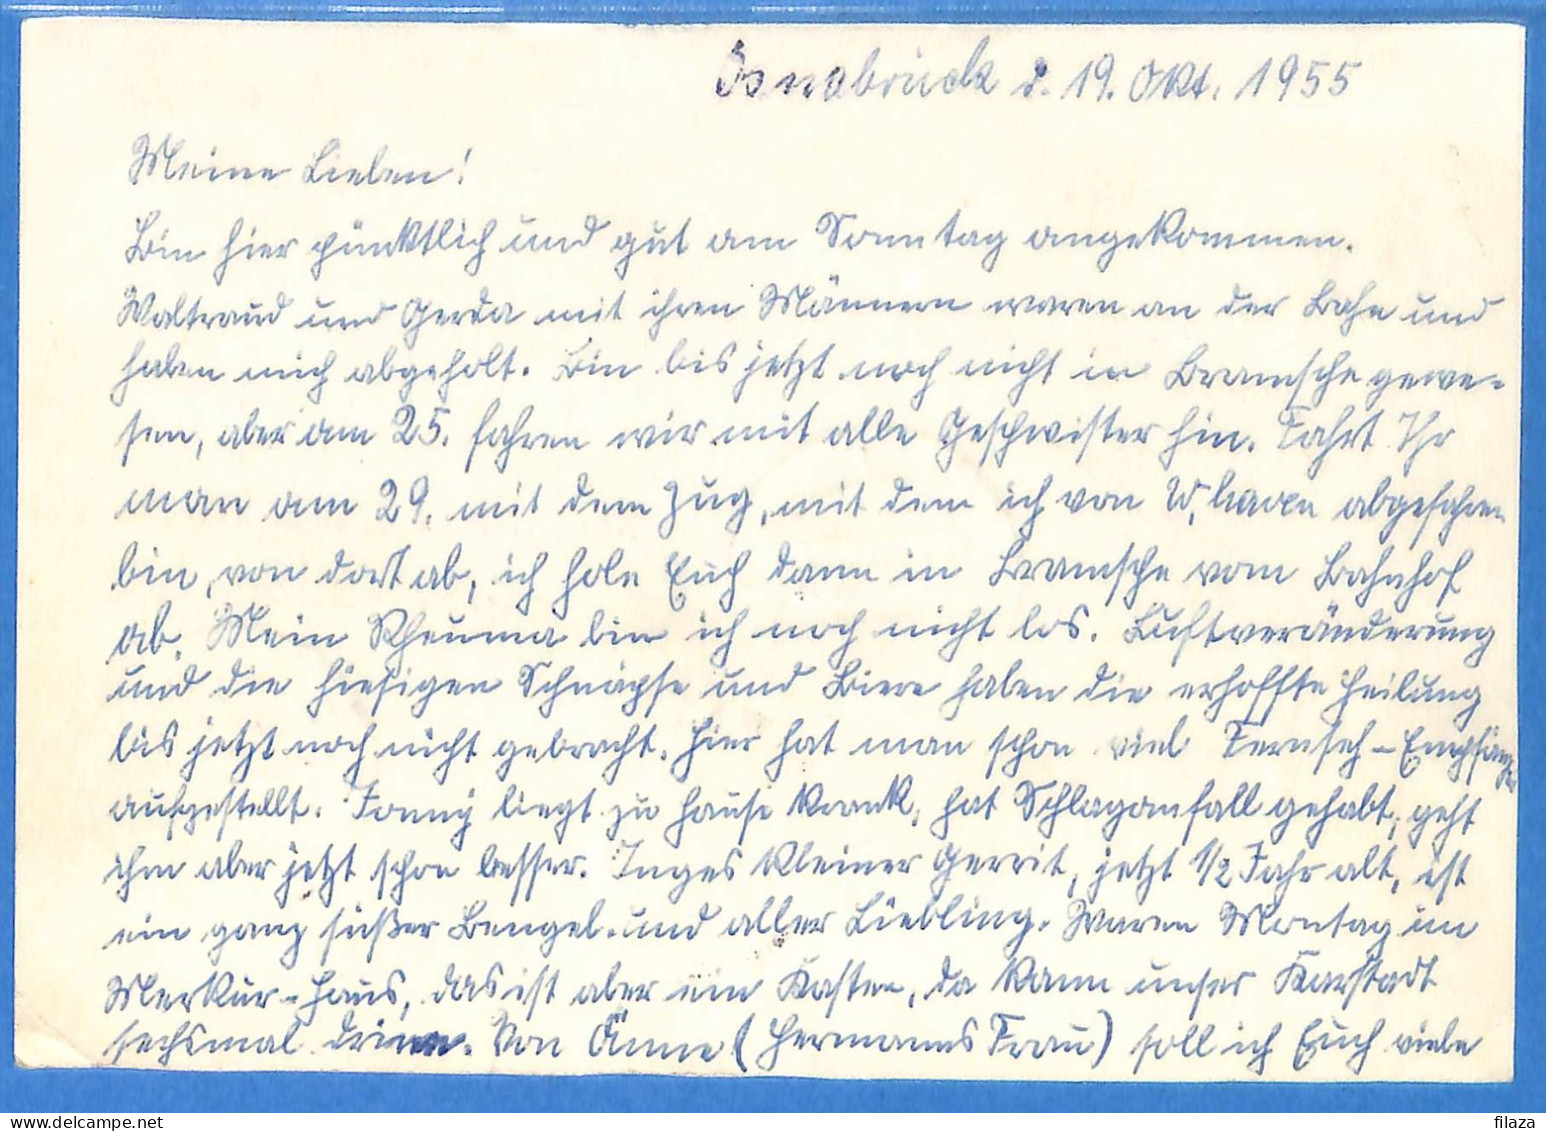 Osnabrück d. 19. Okt. 1955
Meine Lieben!
Bin hier pünktlich und gut am Sonntag angekommen.
Waltraud und Gerda mit ihren Männern waren an der Bahn und
haben mich abgeholt. Bin bis jetzt noch nicht in Bramsche gewe-
sen, aber am 25. fahren wir mit alle Geschwister hin. Fahrt Ihr
man am 29. mit dem Zug, mit dem ich von W, haven abgefahren
bin, von dort ab, ich hole Euch dann in Bramsche vom Bahnhof
ab. Mein Rheuma bin ich noch nicht los. Luftveränderung
und die hiesigen Schnäpse und Biere haben die erhoffte Heilung
bis jetzt noch nicht gebracht. Hier hat man schon viel Fernseh-Empfänger
aufgestellt. Fonny liegt zu Hause krank, hat Schlaganfall gehabt, geht
ihm aber jetzt schon besser. Inges kleiner Gerrit, jetzt 1/2 Jahr alt, ist
ein ganz süßer Bengel und aller Liebling. Waren Montag im
Merkur-Haus, das ist aber ein Kasten, da kann unser Karstadt
sechsmal drinn. Von Änne (Hermanns Frau) soll ich Euch viele
filaza
www.delcampe.net